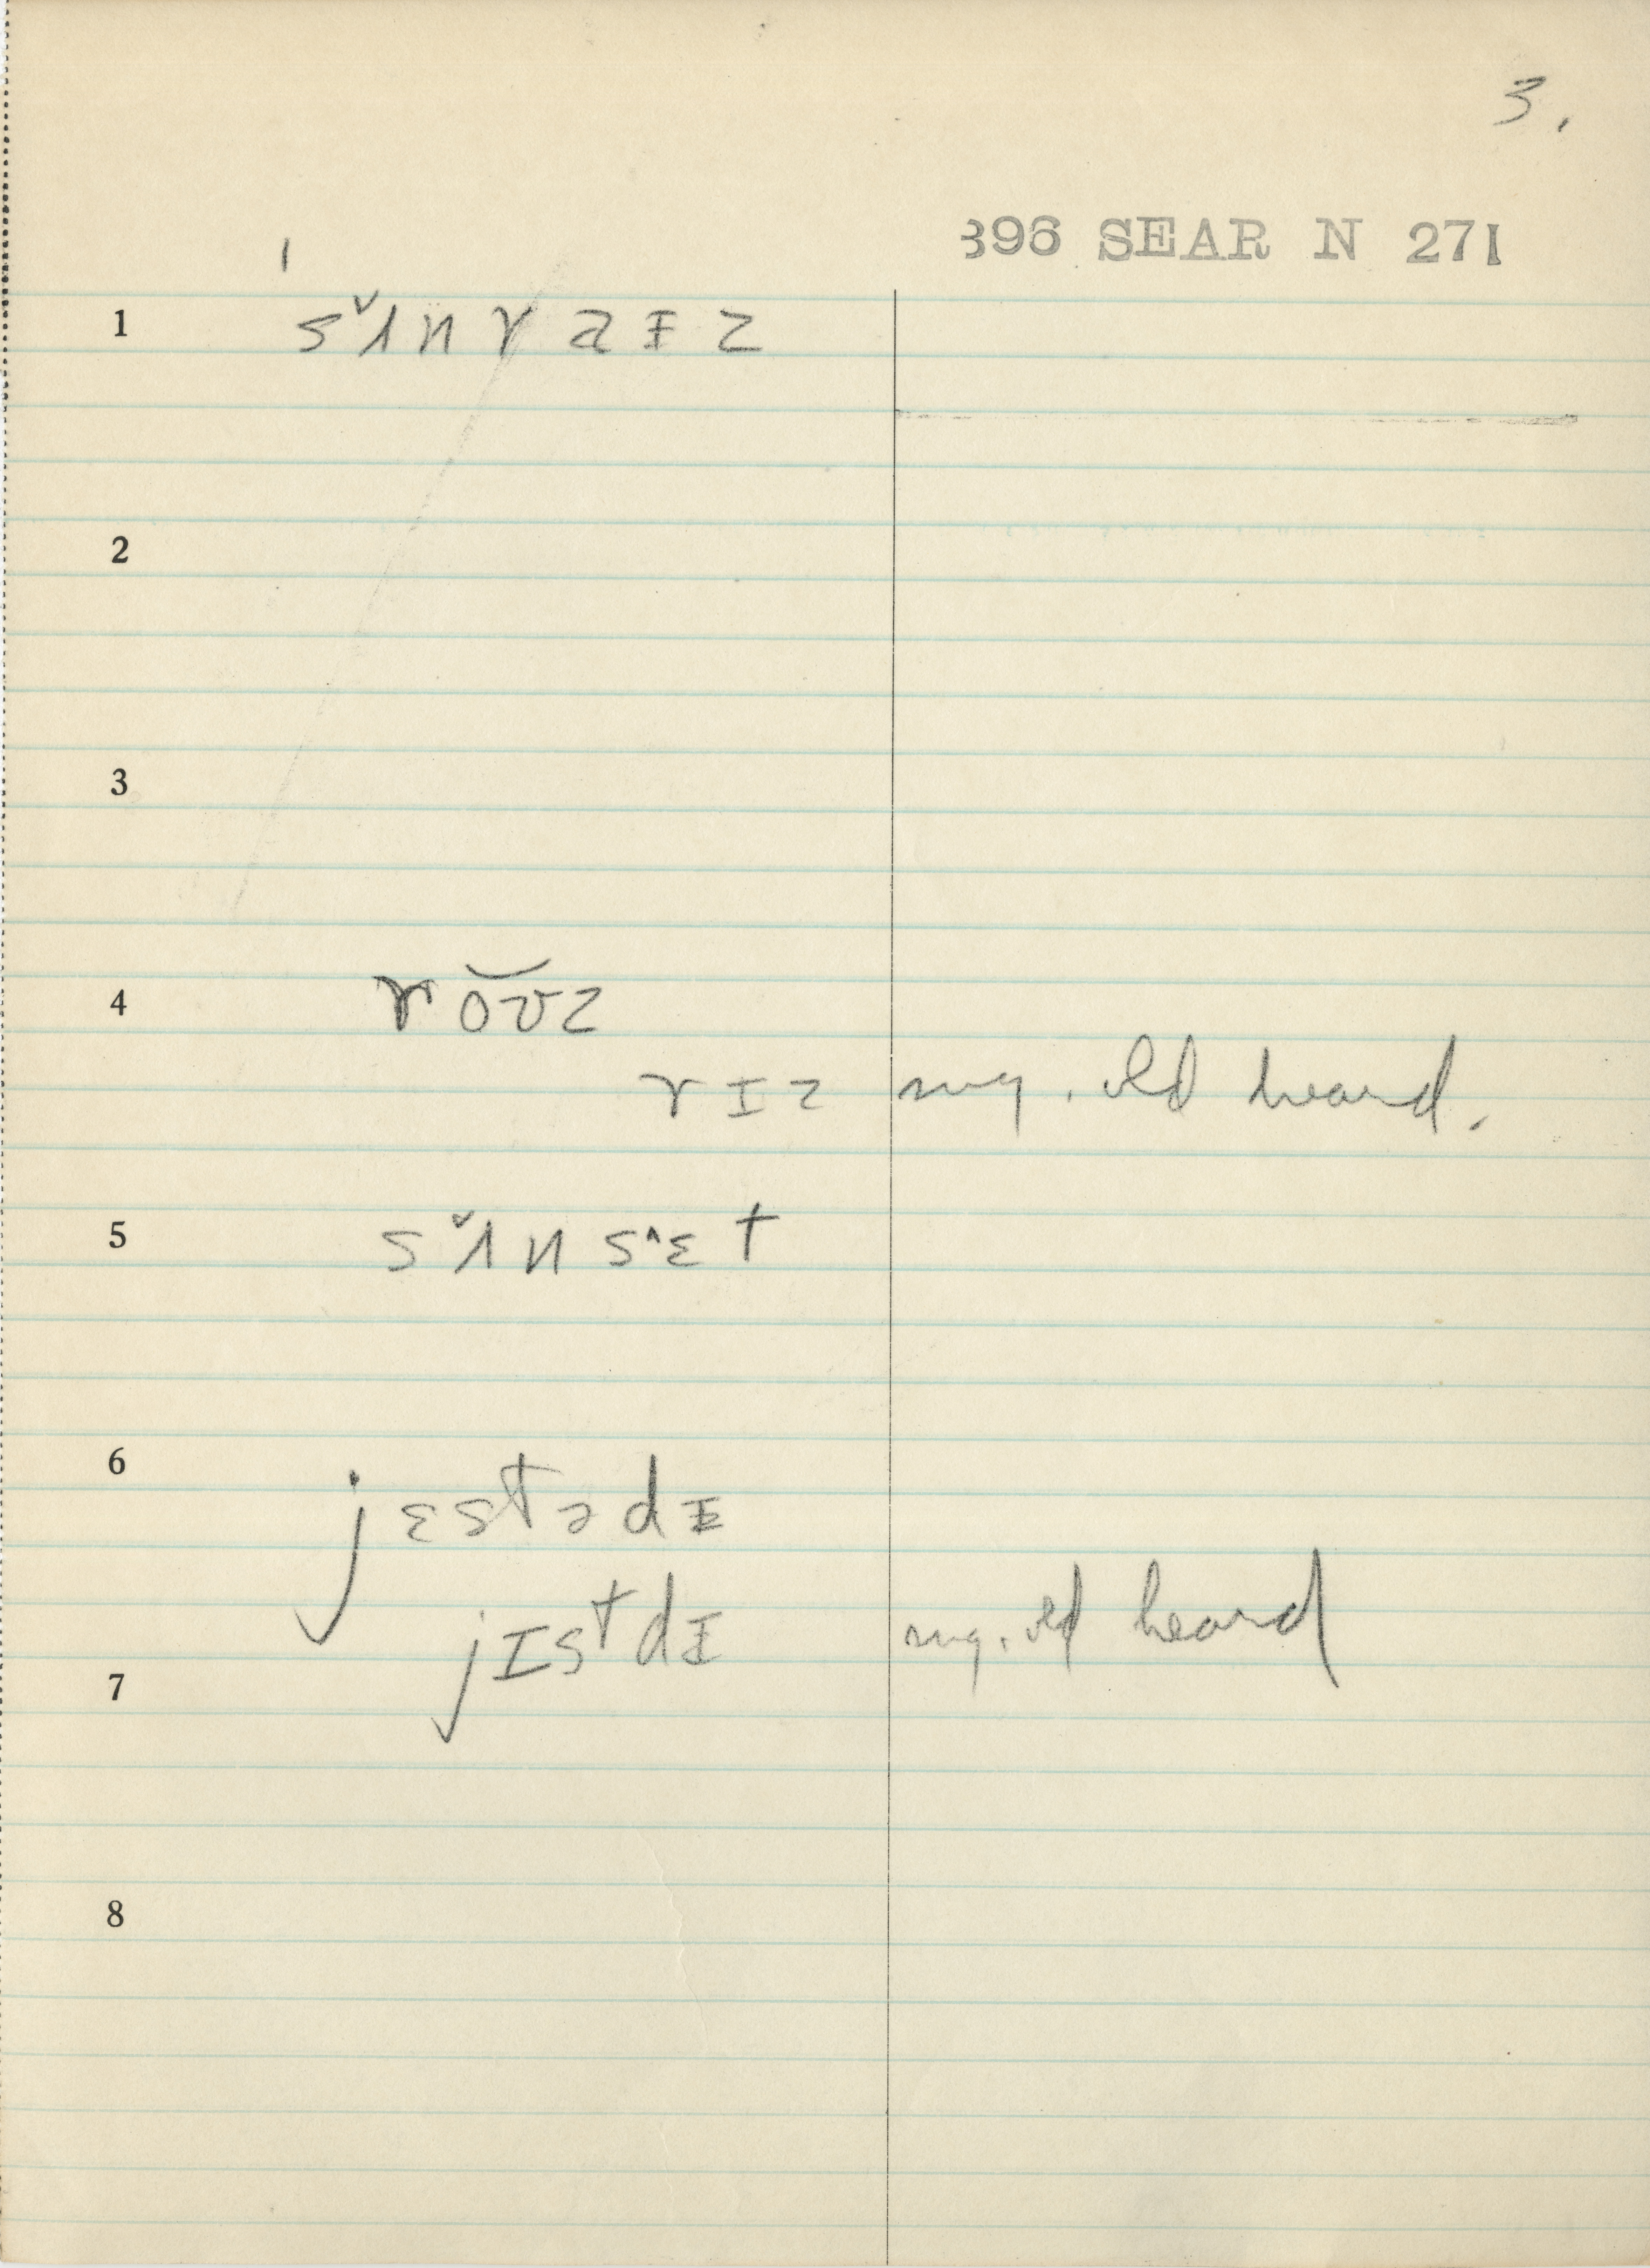 3.
396 SEAR N 271
1 sʌ̌nraɪz
2
3
4 roʊz
rɪz mg. old heard.
5 sʌ̌nsɛ^t
6 jɛstədɪ
jɪstdɪ mg. old heard
7
8